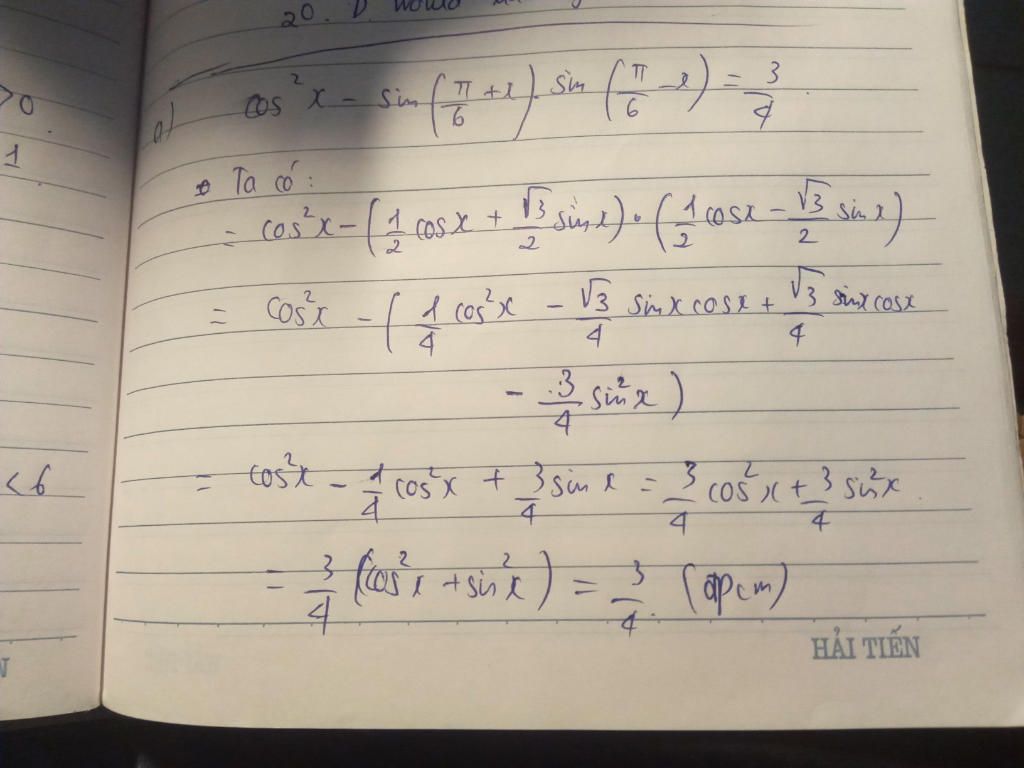 20. D. would
>0
1
a) cos²x - sin(π/6 + x) . sin(π/6 - x) = 3/4.
Ta có:
= cos²x - (1/2 cosx + √3/2 sinx) . (1/2 cosx - √3/2 sinx)
= cos²x - (1/4 cos²x - √3/4 sinx cosx + √3/4 sinx cosx
- 3/4 sin²x)
<6
= cos²x - 1/4 cos²x + 3/4 sin x = 3/4 cos²x + 3/4 sin²x.
= 3/4 (cos²x + sin²x) = 3/4. (đpcm)
HẢI TIẾN